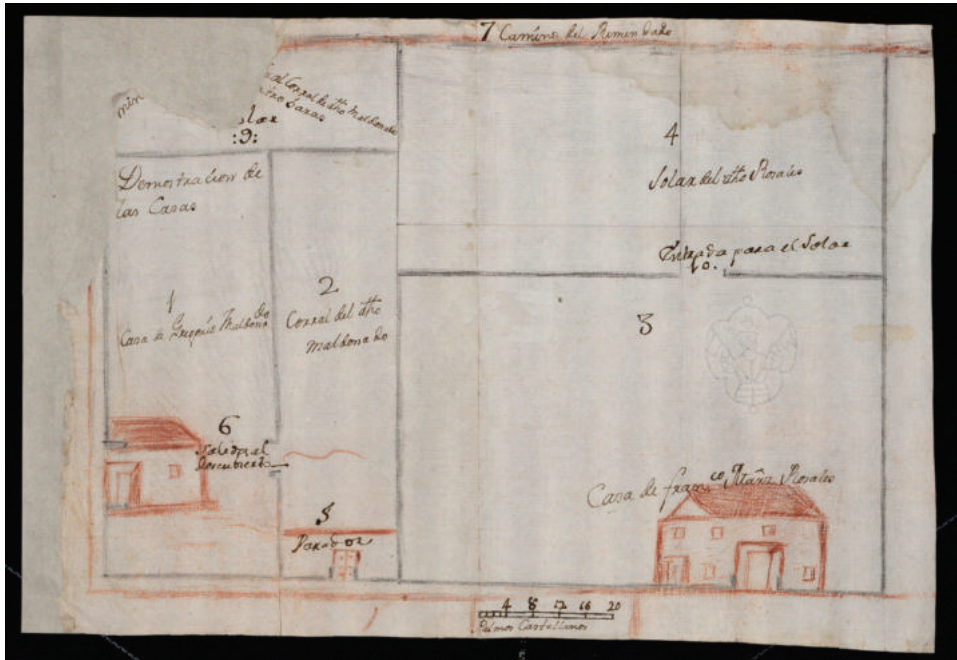 7 Camino del
al Corral de dho Maldonado
:9:
Demostracion de
las Casas
4
Solar del dho Rosales
Entrada para el Solar
10.
1
Casa de Gregorio Maldonado
2
Corral del dho
Maldonado
3
6
Salida al
Descubierto
Casa de franco Rosales
5
Parador
4 8 12 16 20
Palmos Castellanos